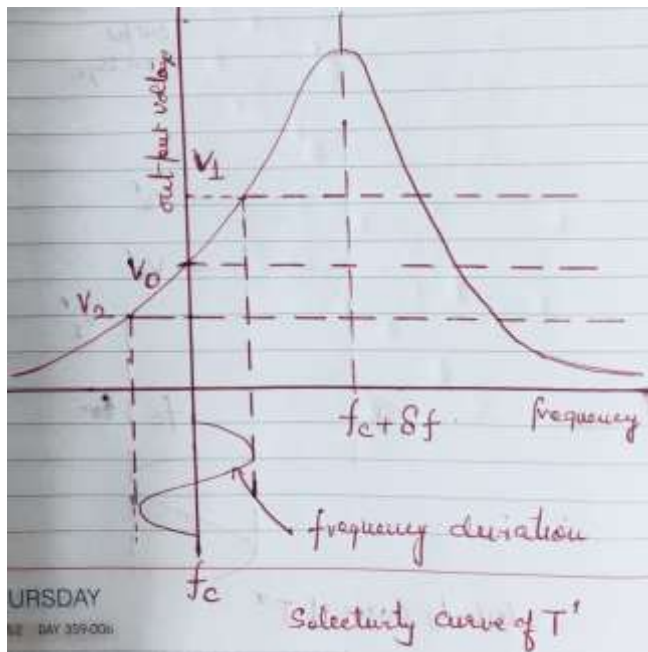 output voltage
V1
V0
V2
fc + δf
frequency
frequency duration
fc
URSDAY
DAY 359-006
Selectivity curve of T'